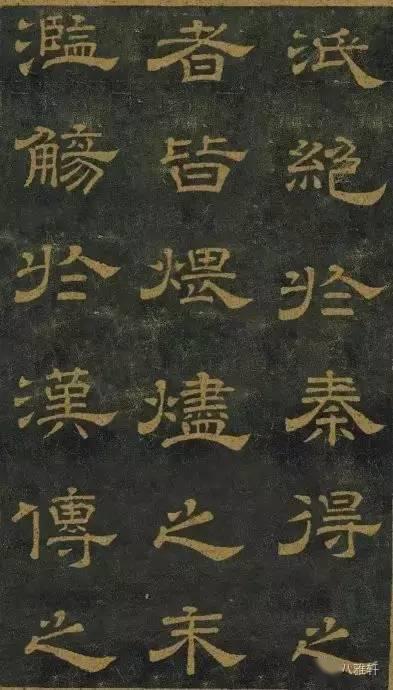 泯絕於秦得之
者皆煨燼之末
濫觴於漢傳之
八雅轩